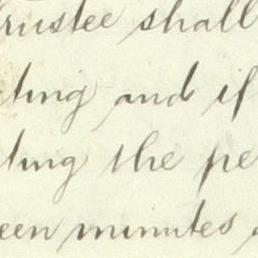 rustee shall
ting and if
ting the pe
een minutes